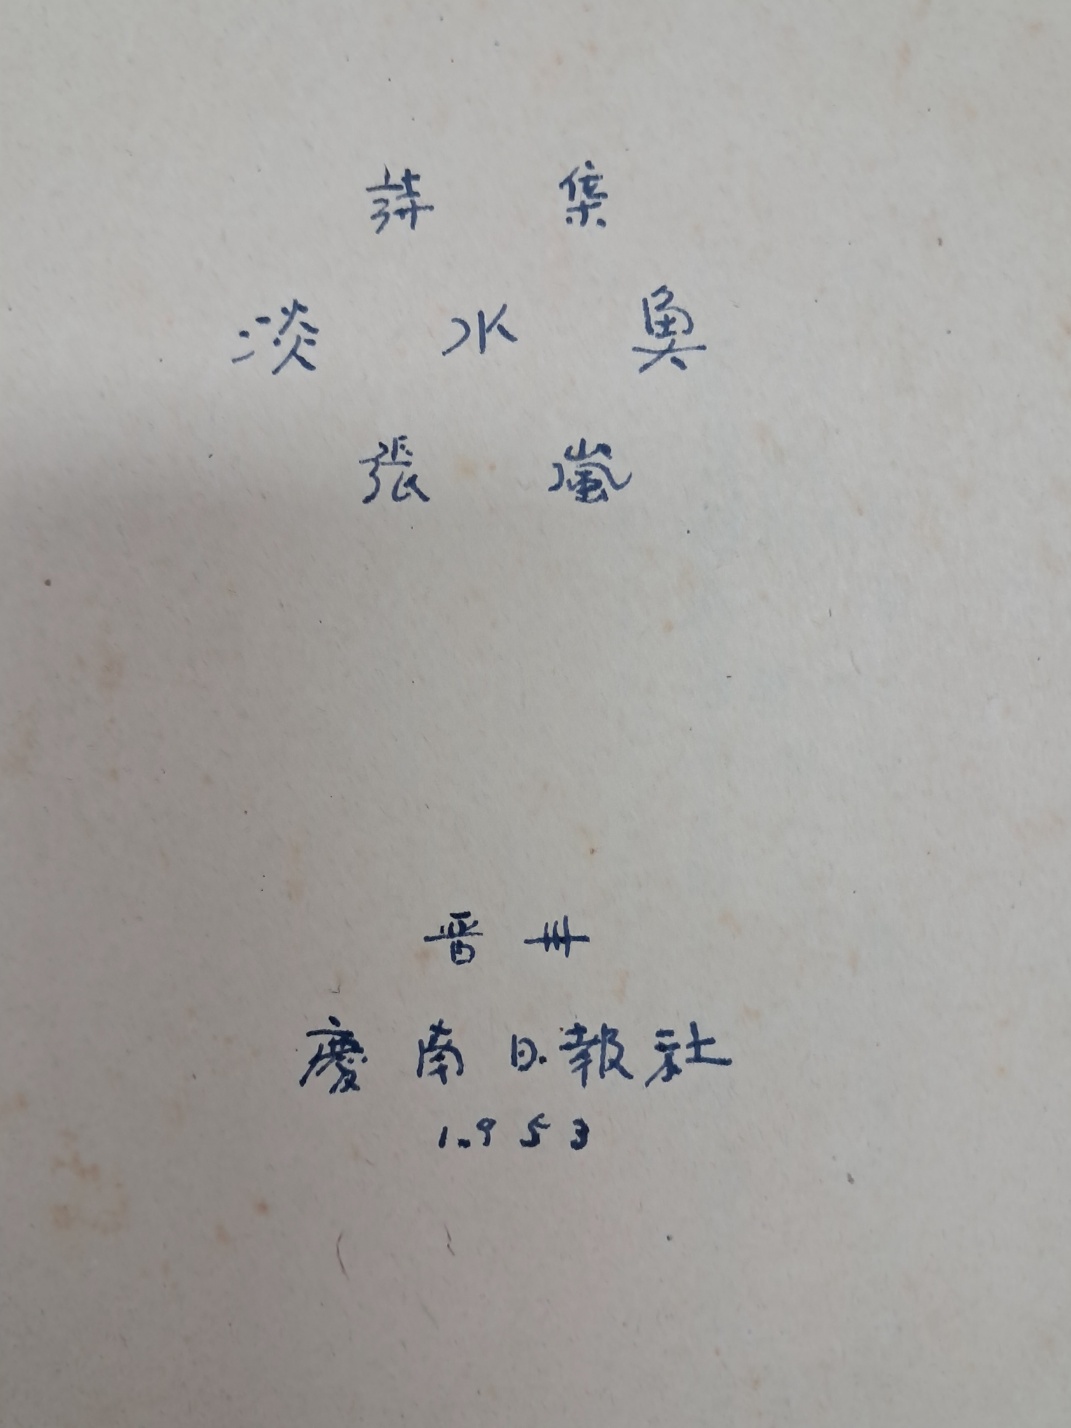 詩集
淡水魚
張嵐
晋州
慶南日報社
1953